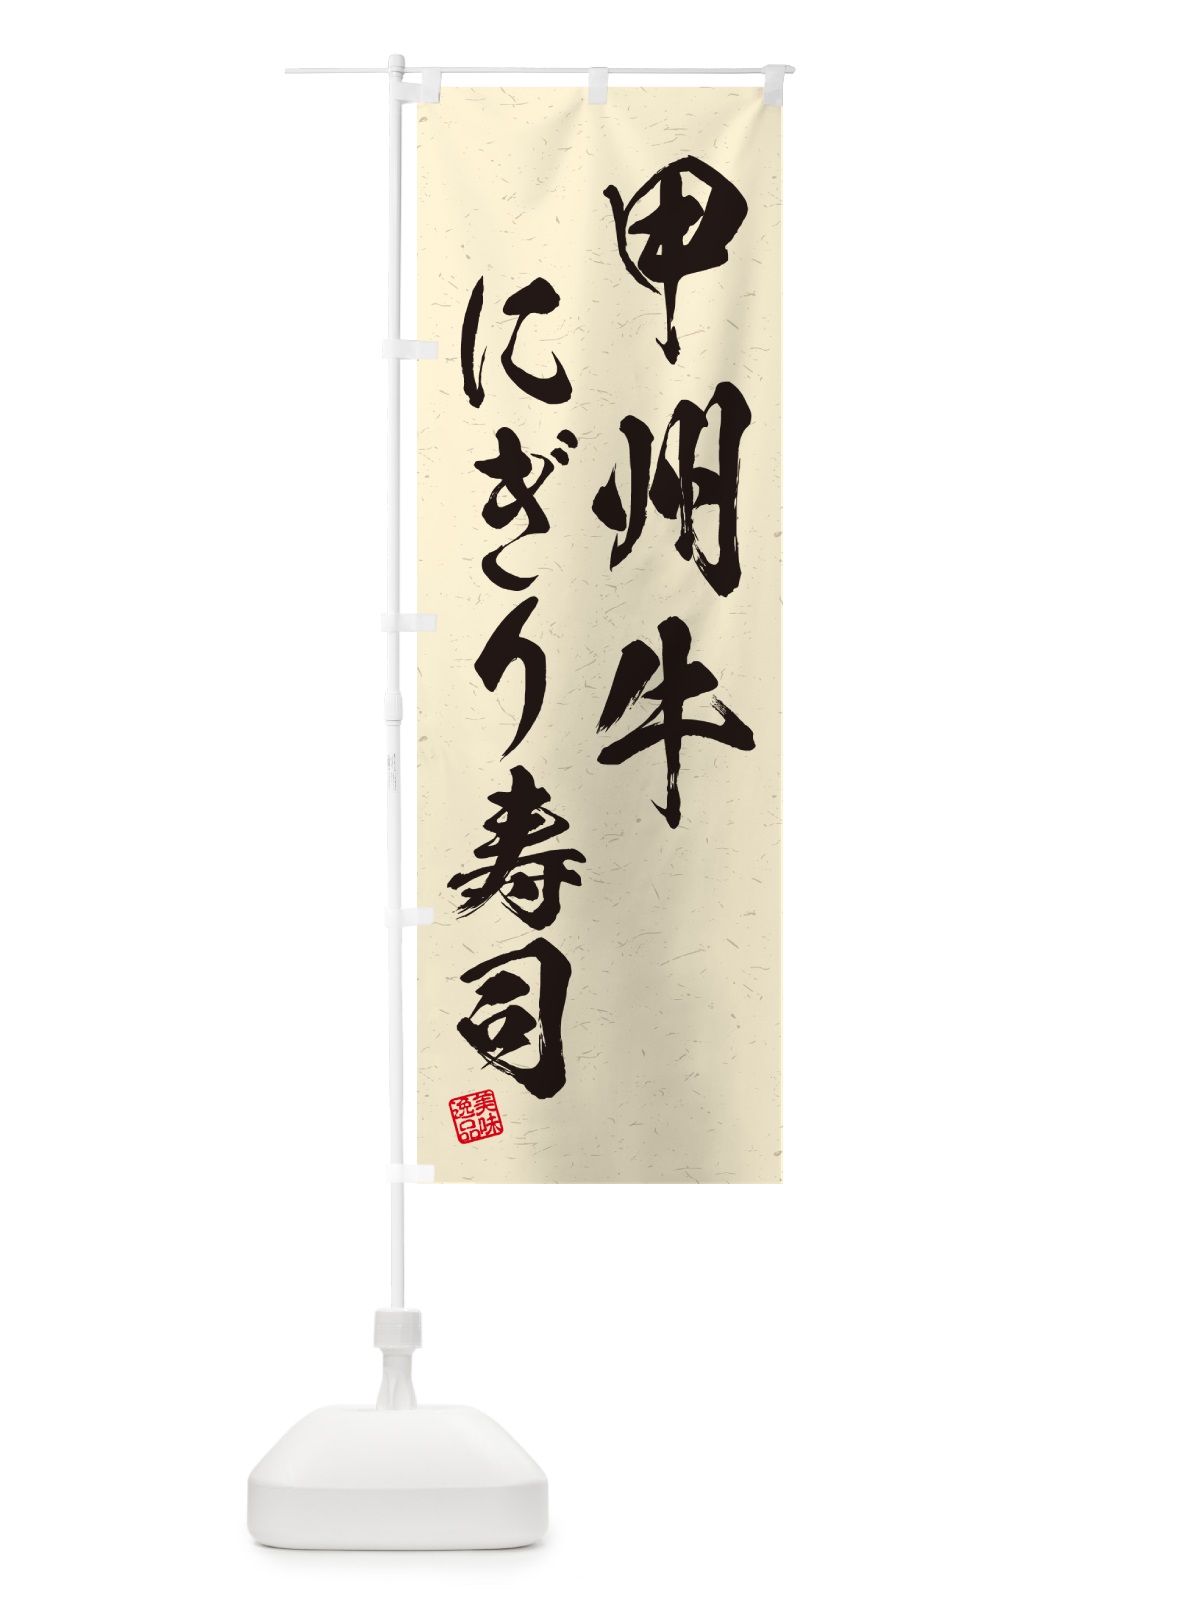 甲州牛
にぎり寿司
美味
逸品